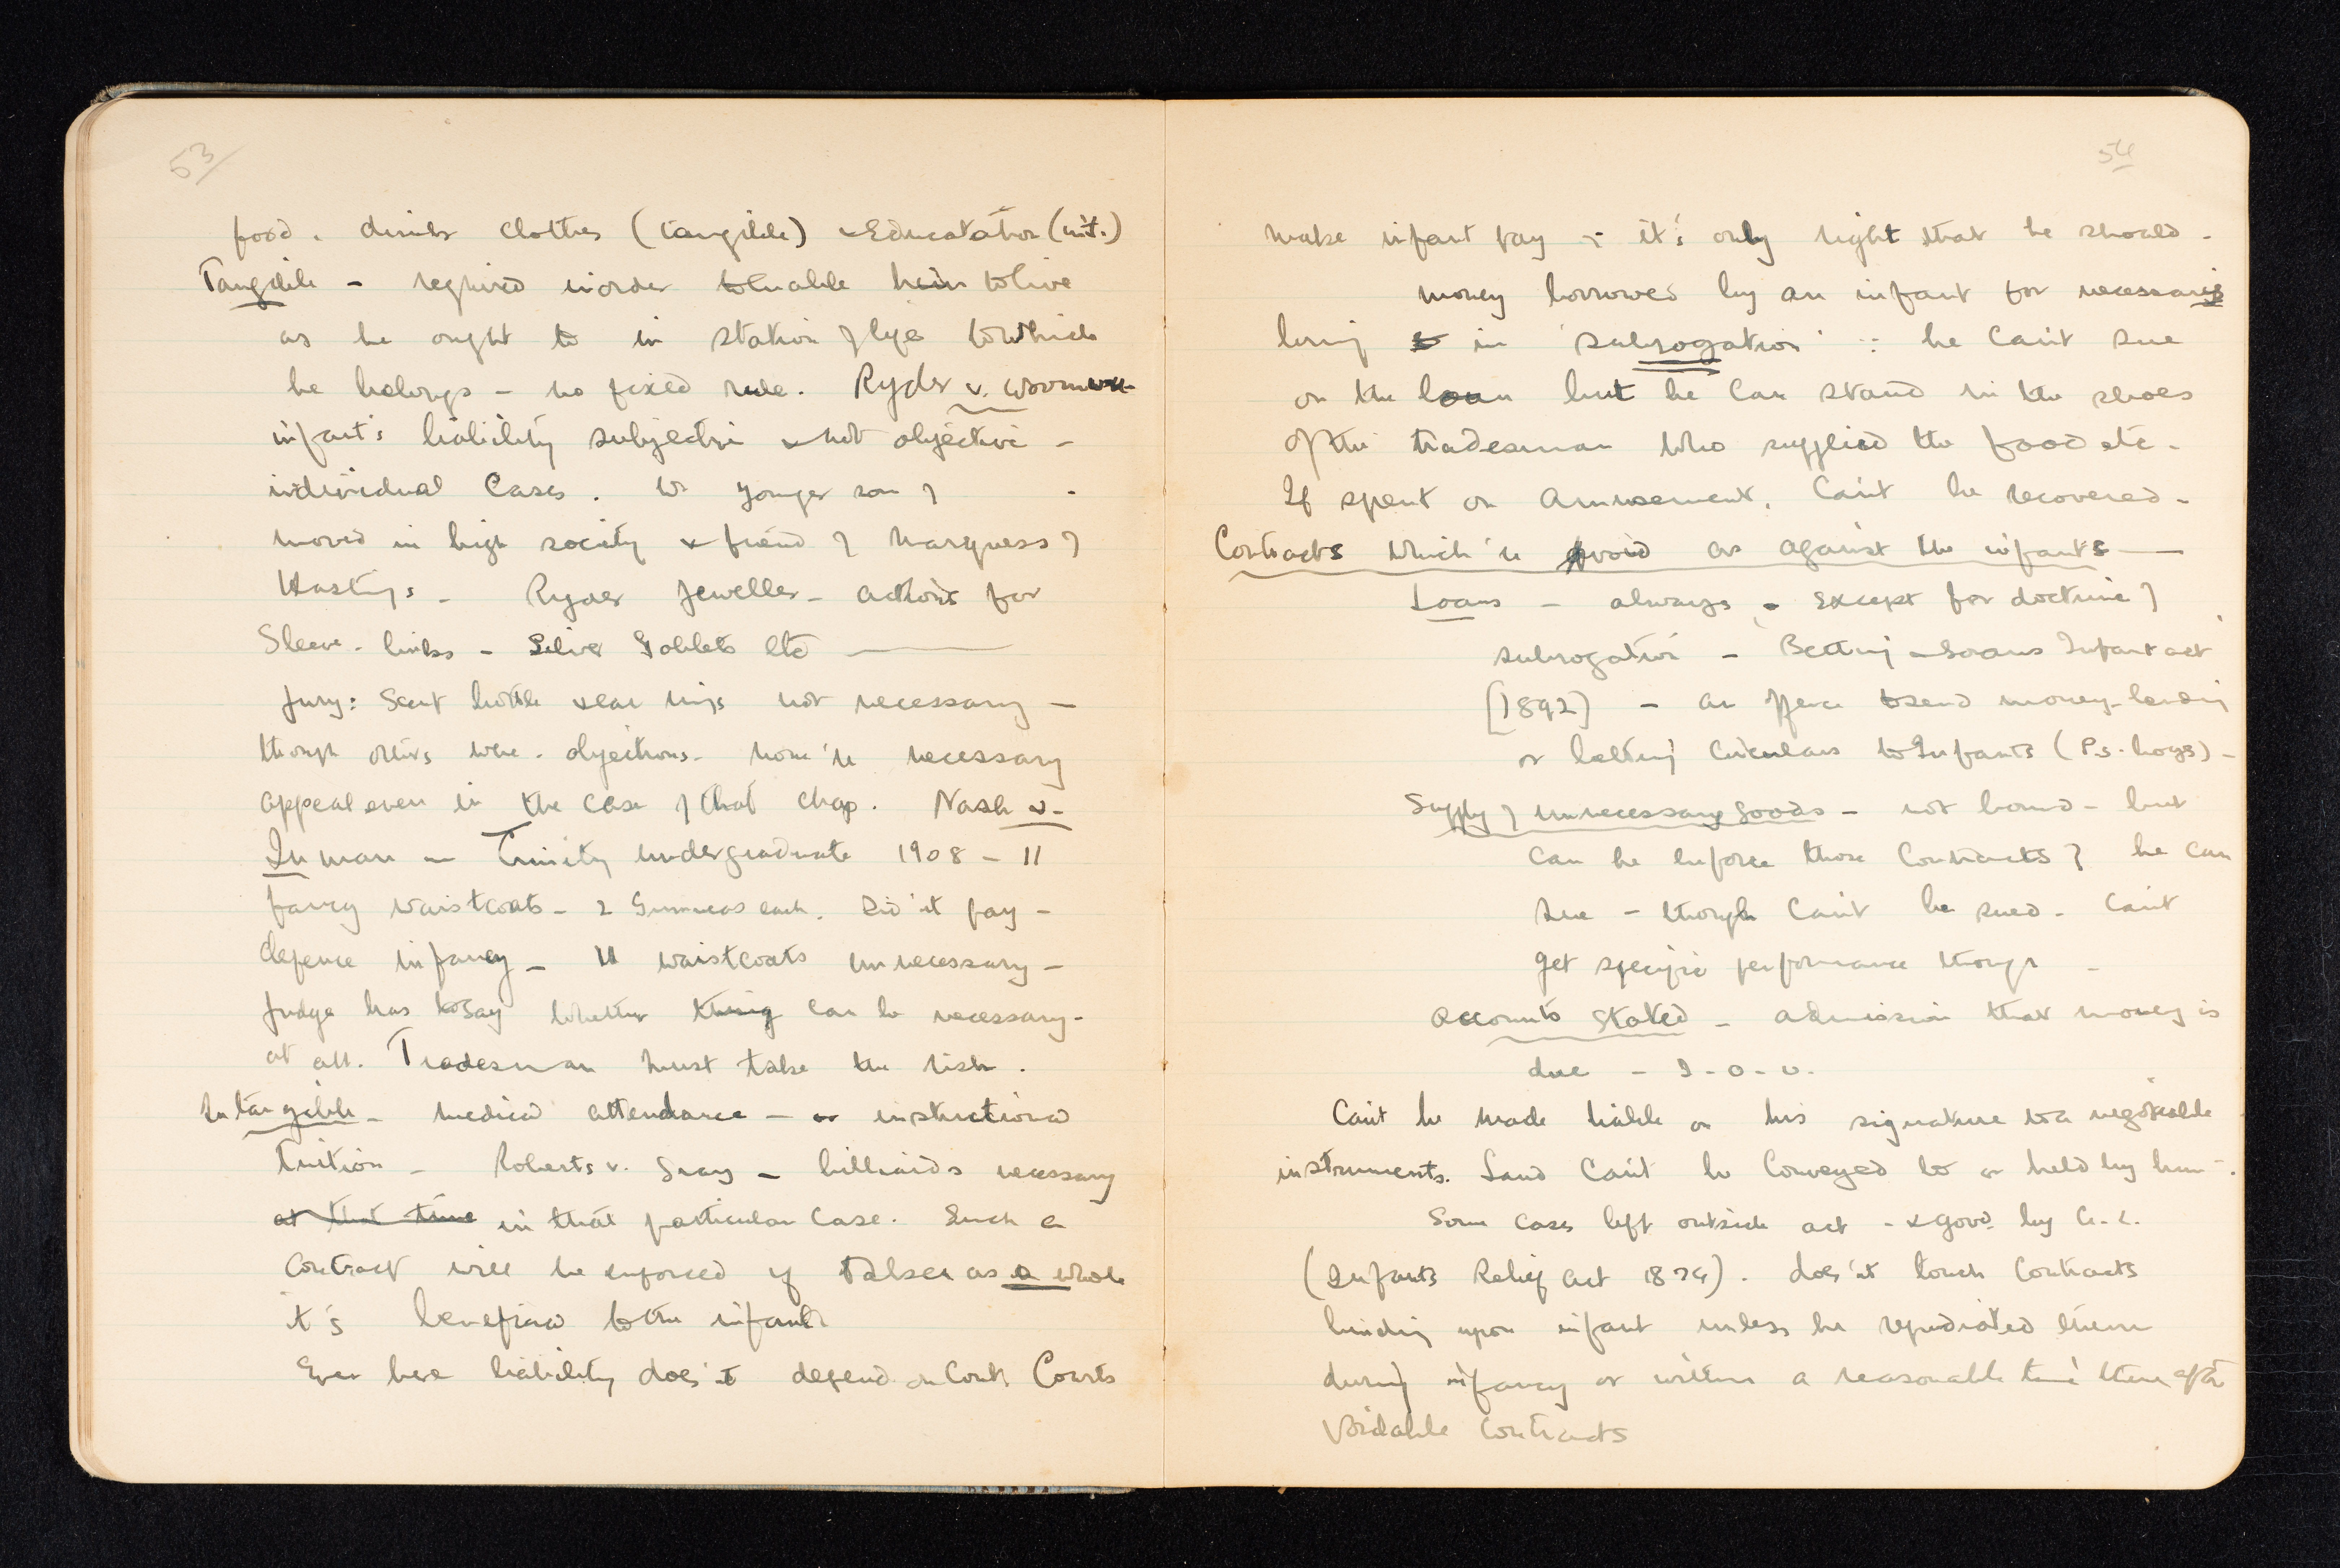 53
food, drinks clothes (tangible) & Education (int.)
Tangible - required in order to enable him to live
as he ought to in station of life to which
he belongs - no fixed rule. Ryder v. Woomwell
infant's liability subjective & not objective -
individual cases. W. younger son of
moved in high society & friend of Marquess of
Hastings - Ryder Jeweller - actions for
Sleeve-links - Silver Goblets etc
Jury: Scent bottle & ear rings not necessary -
though others were. objections. None're necessary
appeal even in the case of that chap. Nash v.
Inman - Trinity undergraduate 1908 - 11
fancy waistcoats - 2 Guineas each. Did'nt pay -
defence infancy - 11 waistcoats unnecessary -
Judge has to say whether thing can be necessary -
at all. Tradesman must take the risk.
Intangible - medical attendance - or instructional
Tuition - Roberts v. Gray - billiards necessary
at that time in that particular case. Such a
contract will be enforced if taken as a whole
it's beneficial to the infant.
Even here liability does't depend on Cont. Courts
54
make infant pay ∵ it's only right that he should -
money borrowed by an infant for necessaries
bring in 'subrogation' ∷ he can't sue
on the loan but he can stand in the shoes
of the tradesman who supplied the food etc -
If spent on amusement, can't be recovered -
Contracts which're void as against the infants
Loans - always - except for doctrine of
subrogation - Betting & Loans Infant act
[1892] - an offence to send money-lending
or betting circulars to Infants (P.s. boys) -
Supply of unnecessary goods - not bound - but
can he enforce those contracts? he can
sue - though can't be sued - can't
get specific performance though -
accounts stated - admission that money is
due - I.O.U.
Can't be made liable on his signature to a negotiable
instruments. Land can't be conveyed to or held by him -
Some cases left outside act - & govd. by C.L.
(Infants Relief Act 1874). does'nt touch contracts
binding upon infant unless he repudiated them
during infancy or within a reasonable time there after
Voidable contracts